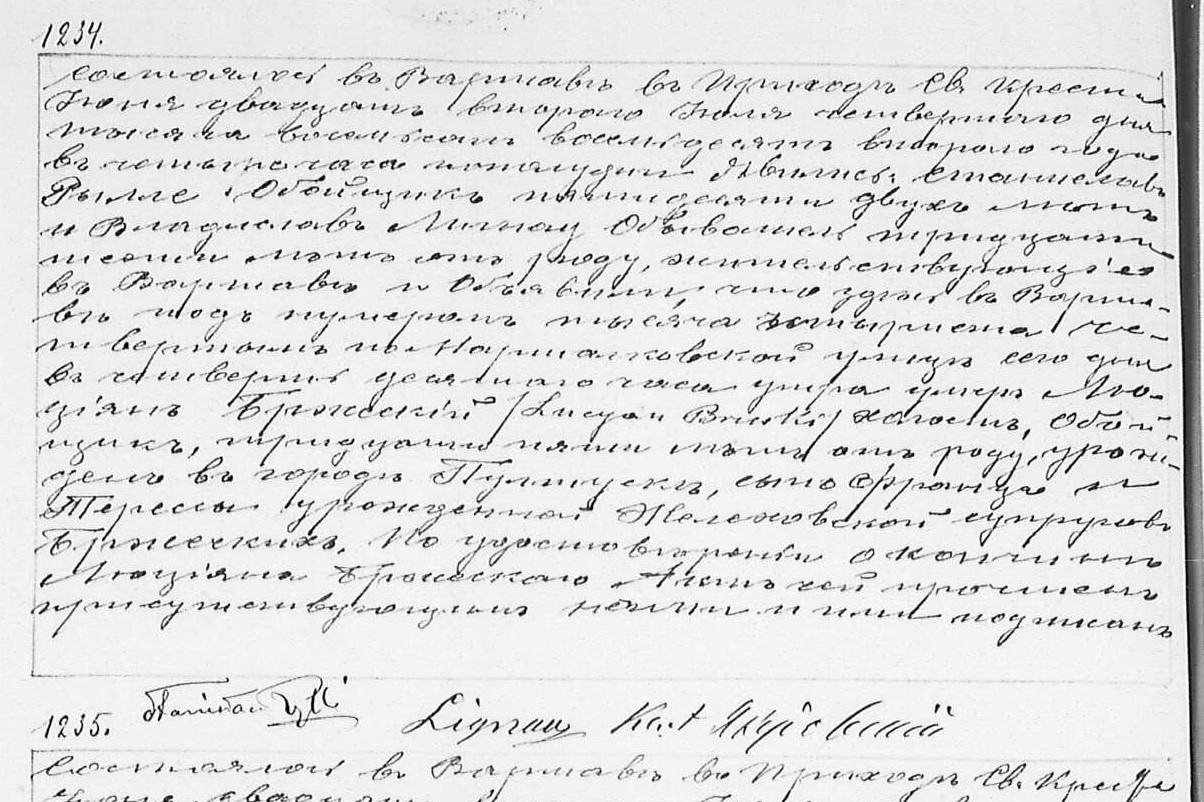 1234.
Состоялось въ Варшавѣ въ Приходѣ Св. Креста
Іюня двадцать второго Іюля четвертаго дня
тысяча восемьсотъ восемьдесятъ второго года
въ четыре часа пополудни. Явились: Станиславъ
Рылле Обойщикъ пятидесяти двухъ лѣтъ
и Владиславъ Лигнау Обыватель тридцати
шести лѣтъ отъ роду, жительствующіе
въ Варшавѣ и Объявили, что здѣсь въ Варша-
вѣ подъ нумеромъ тысяча четыреста че-
твертымъ по Маршалковской улицѣ сего дня
въ четверть десятаго часа утра умеръ Лю-
ціянъ Бржескій /Lucyan Brzeski/ холостъ, Обой-
щикъ, тридцати пяти лѣтъ отъ роду, урож-
денъ въ городѣ Пултускѣ, сынъ Франца и
Терессы урожденной Желеховской супруговъ
Бржескихъ. По удостовѣреніи о кончинѣ
Люціяна Бржескаго Актъ сей прочтенъ
присутствующимъ нами и ими подписанъ
1235. Stanisław Lignau
Состоялось въ Варшавѣ въ Приходѣ Св. Креста
Іюня двадцать